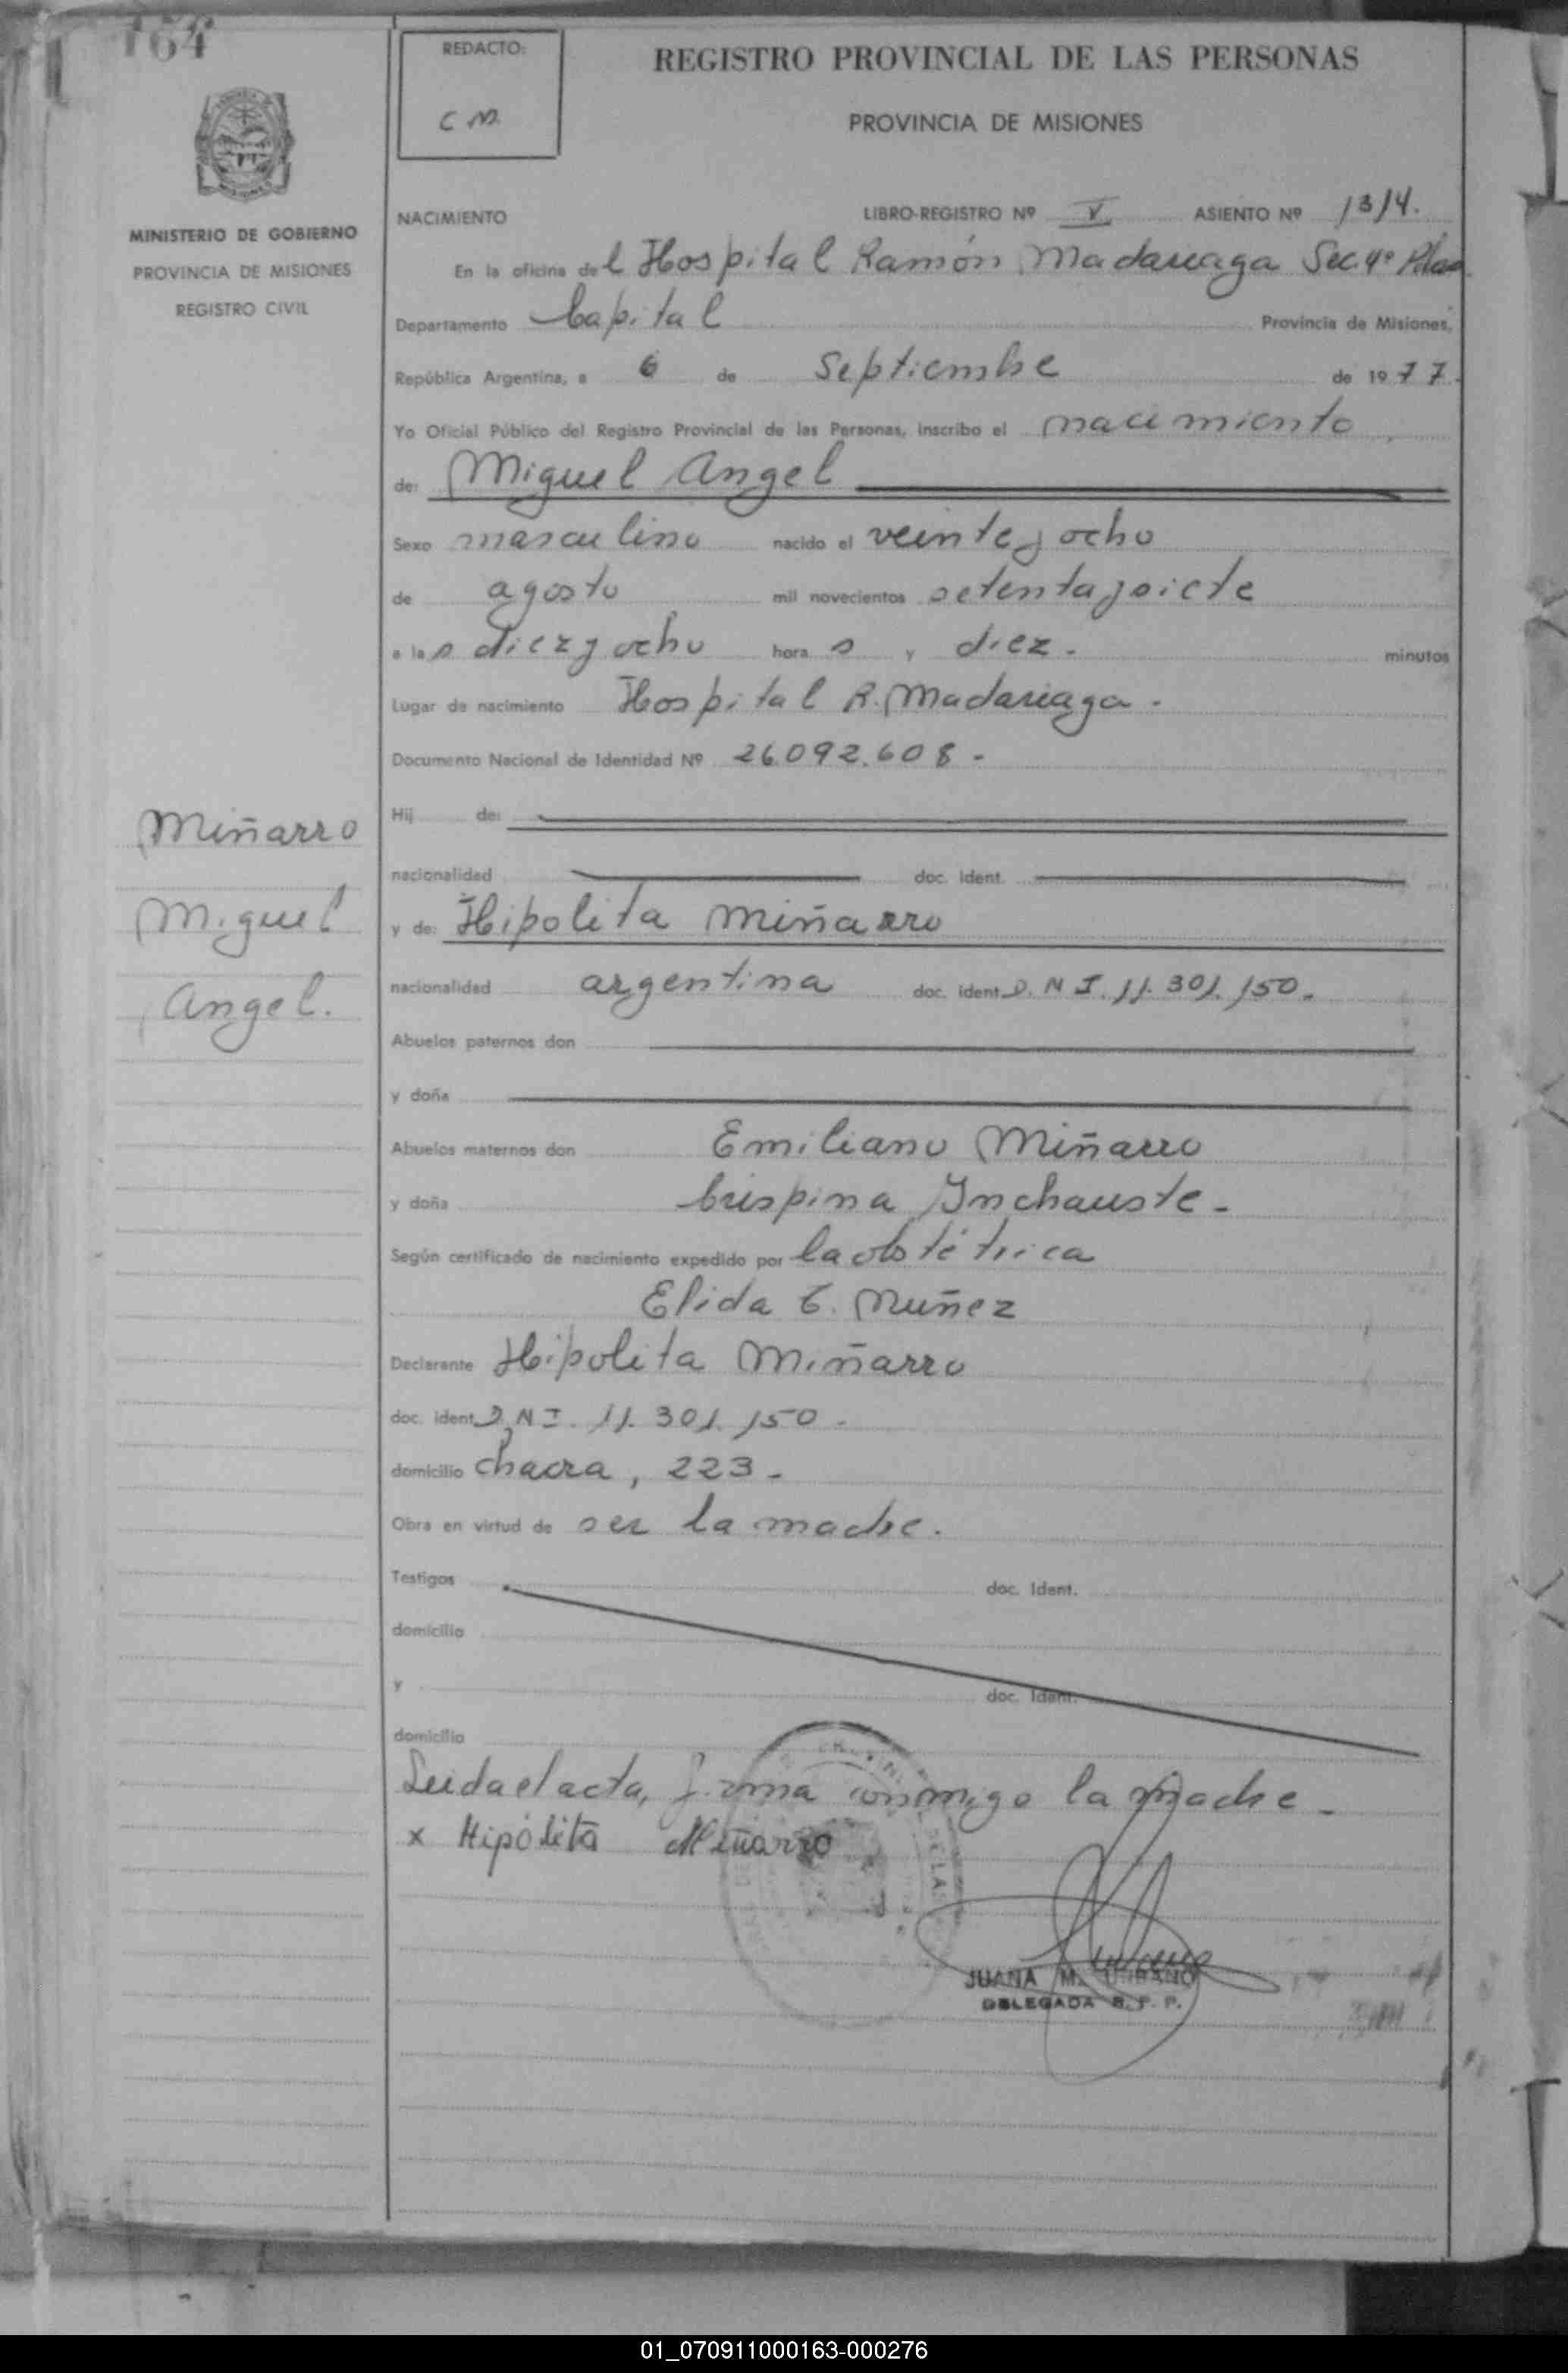 164
REDACTO:
C M.
REGISTRO PROVINCIAL DE LAS PERSONAS
PROVINCIA DE MISIONES
MINISTERIO DE GOBIERNO
PROVINCIA DE MISIONES
REGISTRO CIVIL
NACIMIENTO LIBRO-REGISTRO Nº V ASIENTO Nº 1314.
En la oficina del Hospital Ramón Madariaga Sec. 4º
Departamento Capital Provincia de Misiones,
República Argentina, a 6 de Septiembre de 1977.
Yo Oficial Público del Registro Provincial de las Personas, inscribo el nacimiento
de: Miguel Angel
Sexo masculino nacido el veinte y ocho
de agosto mil novecientos setenta y siete
a las diez y ocho horas y diez. minutos
Lugar de nacimiento Hospital R. Madariaga.
Documento Nacional de Identidad Nº 26.092.608-
Hij de:
nacionalidad doc. ident.
Miñarro
Miguel
Angel.
y de: Hipolita Miñarro
nacionalidad argentina doc. ident D.N.I. 11.301.150.
Abuelos paternos don
y doña
Abuelos maternos don Emiliano Miñarro
y doña Crispina Ynchauste-
Según certificado de nacimiento expedido por la obstétrica
Elida C. Muñez
Declarante Hipolita Miñarro
doc. ident D.N.I. 11.301.150.
domicilio chacra, 223-
Obra en virtud de ser la madre.
Testigos doc. Ident.
domicilio
y doc. Ident.
domicilio
Leida el acta, firma conmigo la madre-
x Hipólita Miñarro
JUANA M. URBANO
DELEGADA R. P. P.
01_070911000163-000276